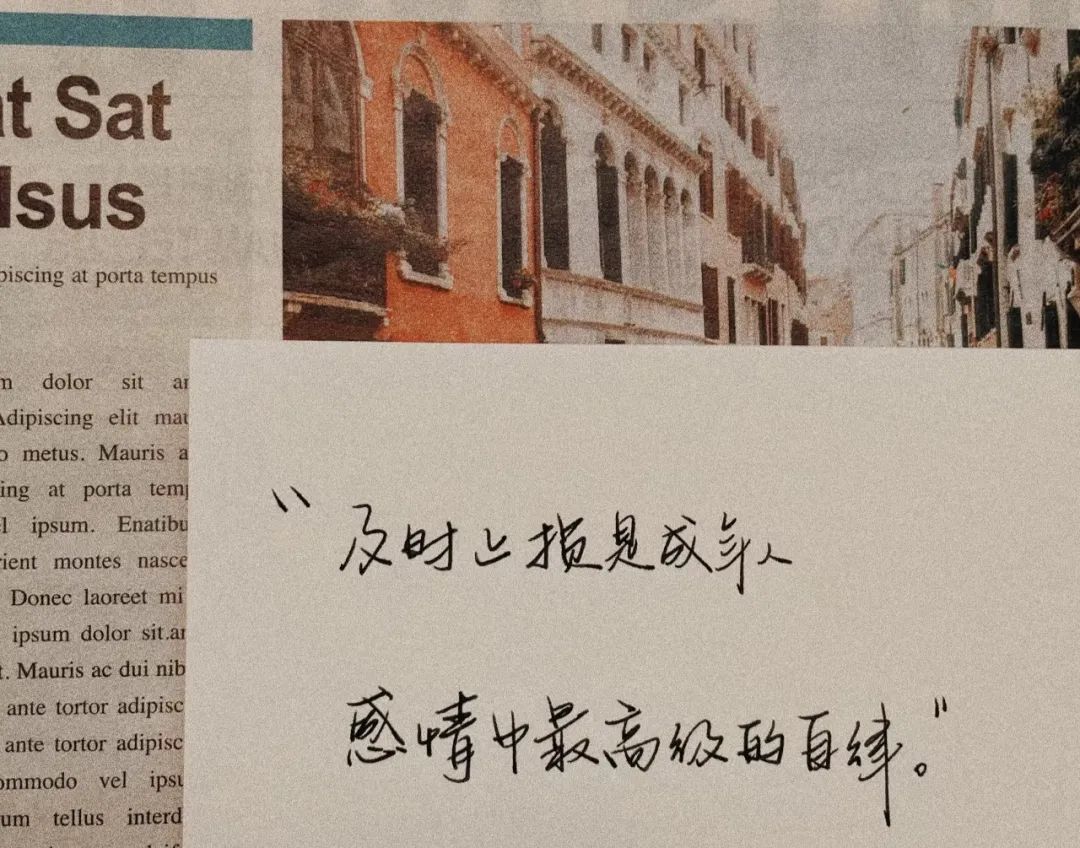 at Sat
lsus
piscing at porta tempus
m dolor sit
Adipiscing elit
o metus. Mauris a
ing at porta
l ipsum.
rient montes
Donec laoreet mi
ipsum dolor sit.
t. Mauris ac dui nib
ante tortor adipisc
ante tortor adipisc
ommodo vel
um tellus interd
"及时止损是成年人
感情中最高级的自律。"